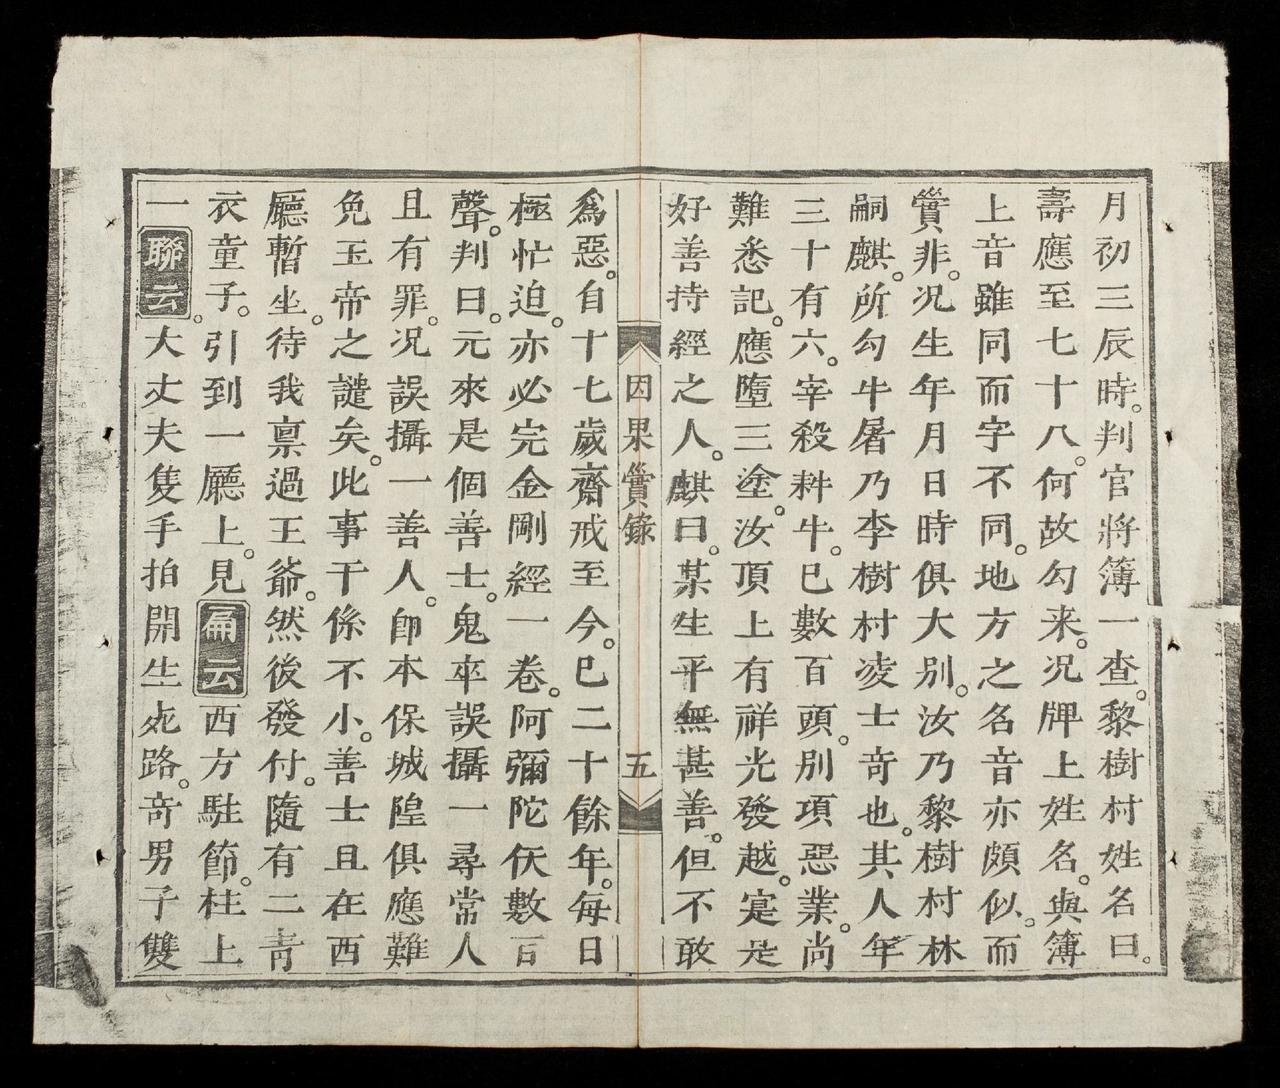 月初三辰時。判官將簿一查。黎樹村姓名曰。
壽應至七十八。何故勾来。况牌上姓名。與簿
上音雖同而字不同。地方之名音亦頗似。而
實非。况生年月日時俱大别。汝乃黎樹村林
嗣麒。所勾牛屠乃李樹村凌士奇也。其人年
三十有六。宰殺耕牛。已數百頭。别項惡業。尚
難悉記。應墮三塗。汝頂上有祥光發越。寔是
好善持經之人。麒曰。某生平無甚善。但不敢
因果實錄
五
爲惡。自十七歲齋戒至今。已二十餘年。每日
極忙迫。亦必完金剛經一卷。阿彌陀佛數百
聲。判曰。元來是個善士。鬼卒誤攝一尋常人
且有罪。况誤攝一善人。卽本保城隍俱應難
免玉帝之譴矣。此事干係不小。善士且在西
廳暫坐。待我禀過王爺。然後發付。隨有二青
衣童子。引到一廳上。見扁云西方駐節。柱上
一聯云大丈夫隻手拍開生死路。奇男子雙